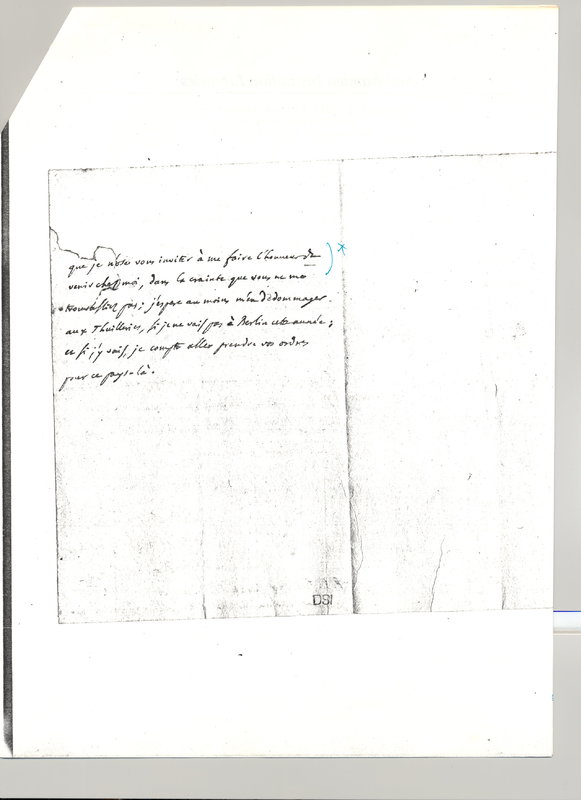 que je n'ose vous inviter à me faire l'honneur de
venir chez moi, dans la crainte que vous ne me
trouvassiez pas; j'espere au moins m'en dedommager
aux Thuilleries, si je ne vais pas à Berlin cette année;
et si j'y vais, je compte aller prendre vos ordres
pour ce pays-là.
DSI